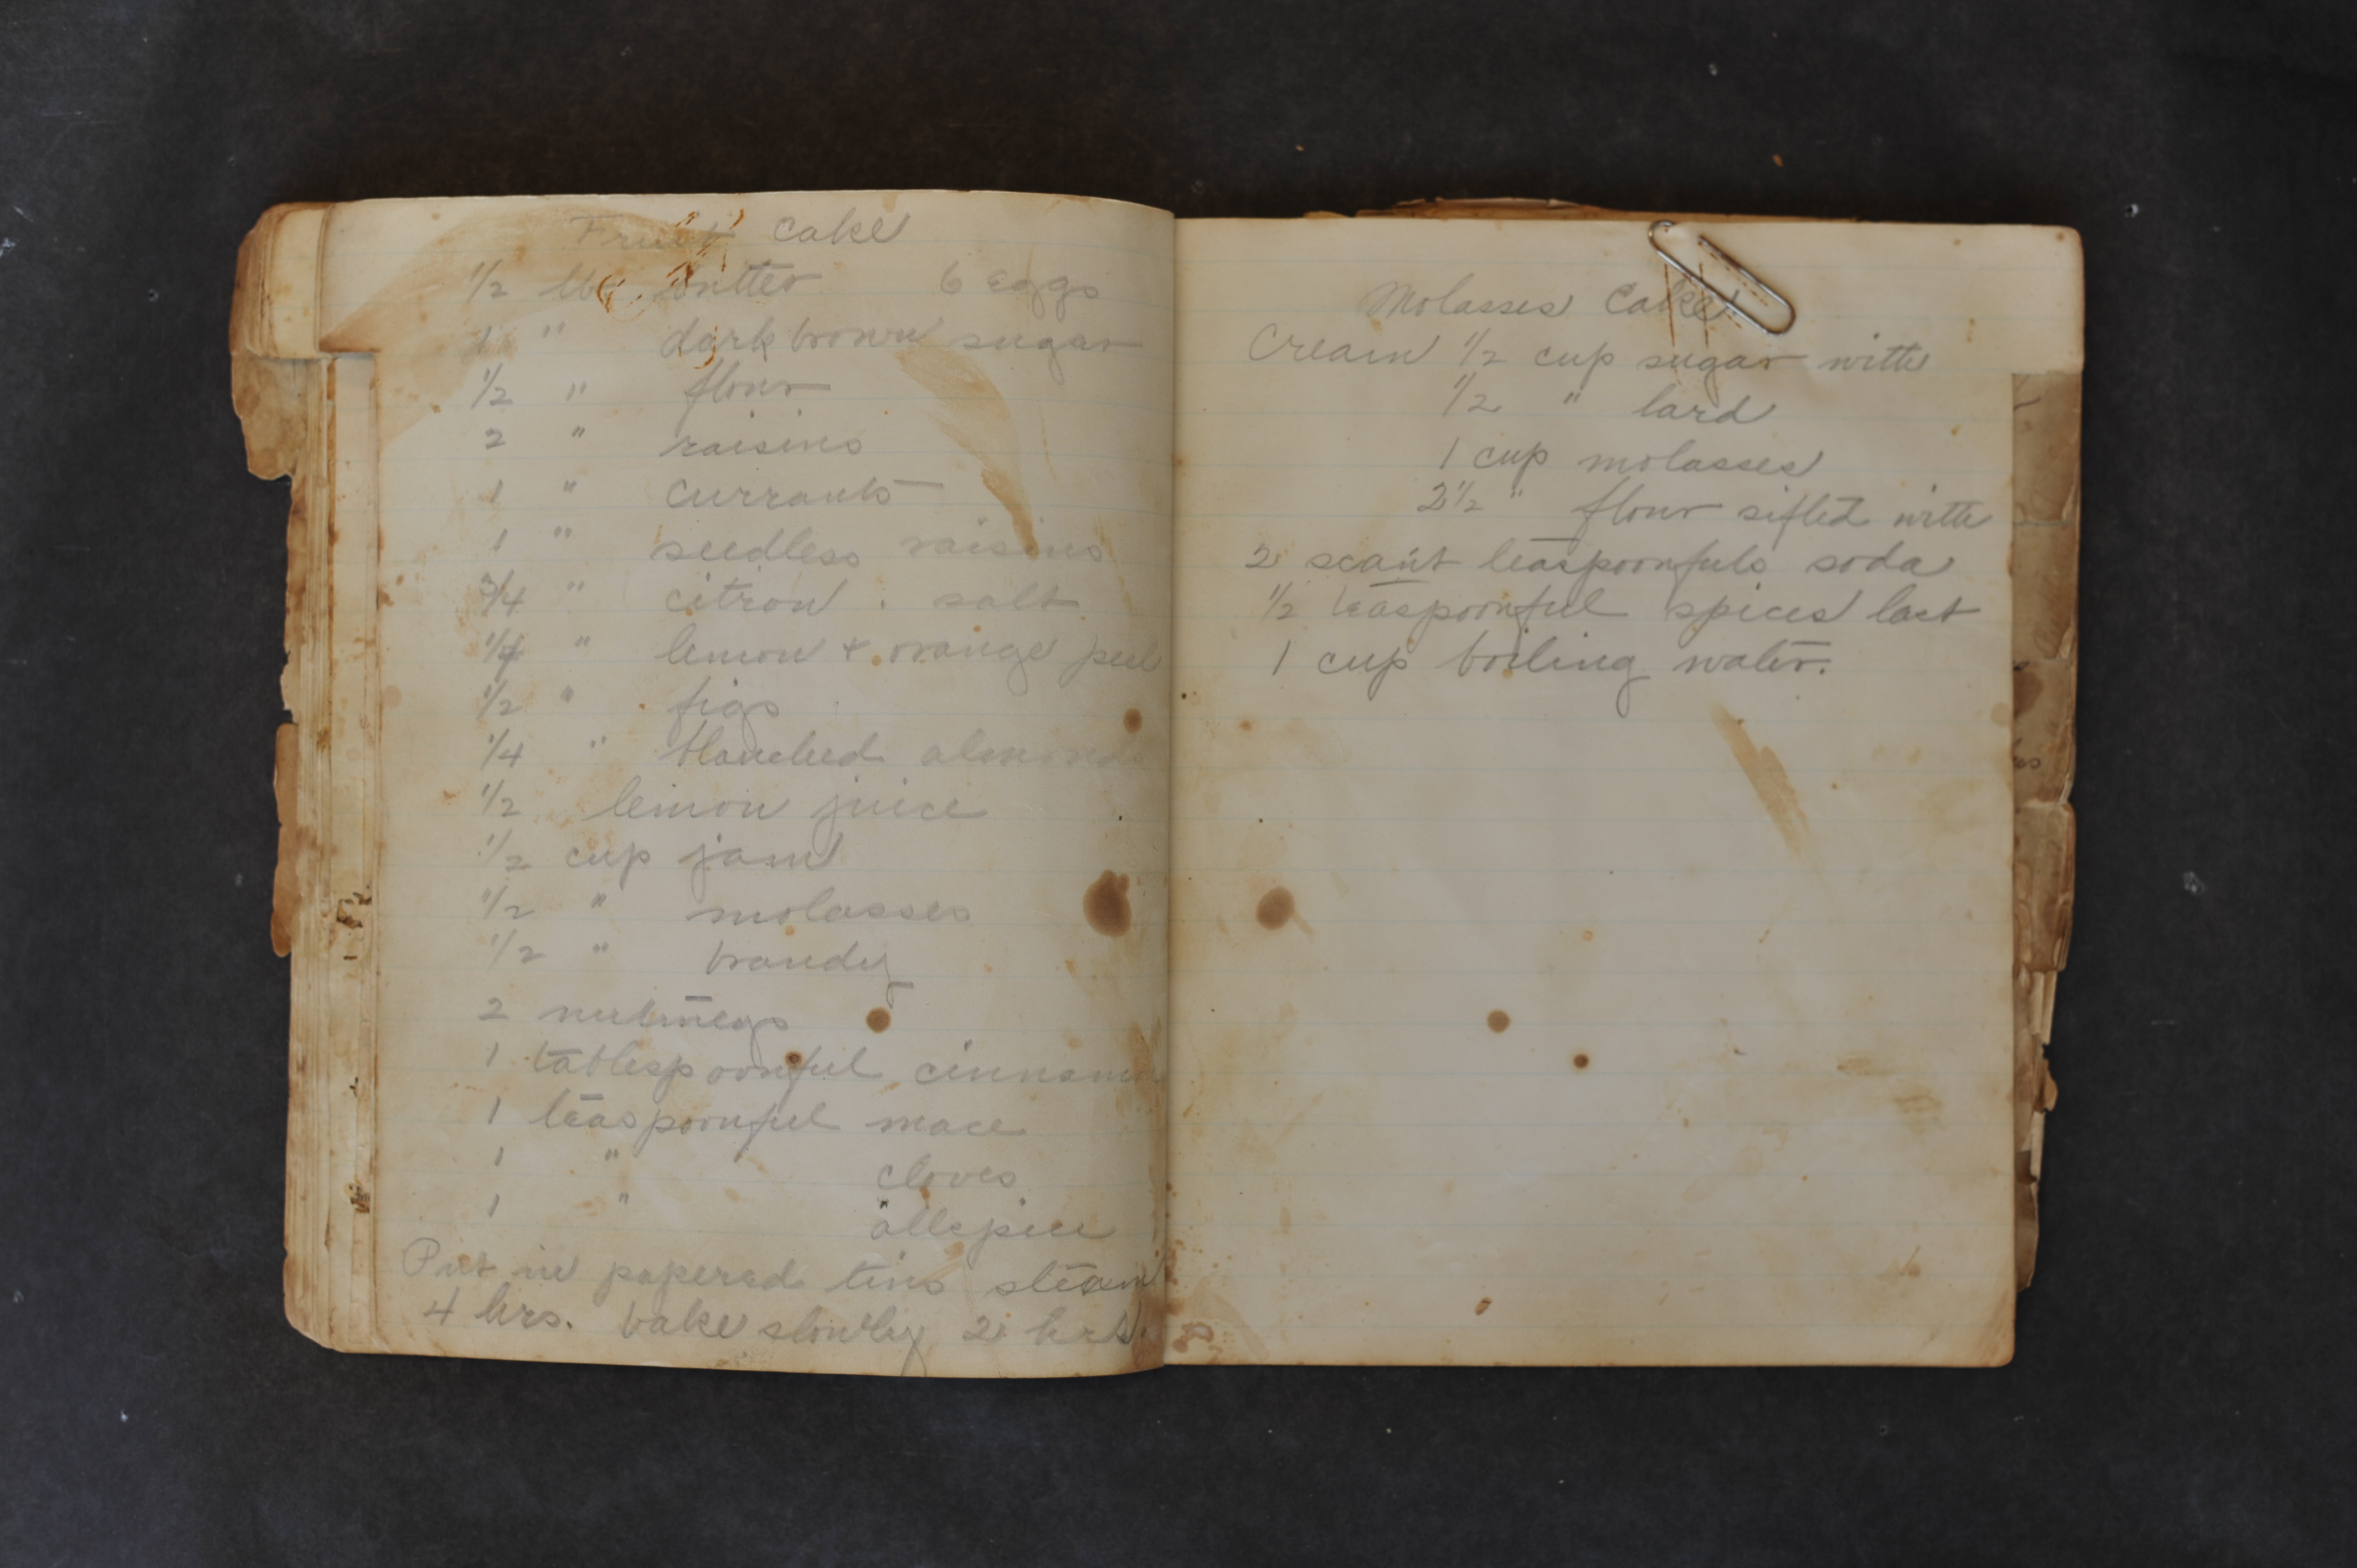 Fruit Cake
1/2 lb. butter 6 eggs
1 " dark brown sugar
1/2 " flour
2 " raisins
1 " currants
1 " seedless raisins
3/4 " citron . salt
1/4 " lemon + orange peel
1/2 " figs
1/4 " blanched almonds
1/2 lemon juice
1/2 cup jam
1/2 " molasses
1/2 " brandy
2 nutmegs
1 tablespoonful cinnamon
1 teaspoonful mace
1 " cloves
1 " allspice
Put in papered tins steam
4 hrs. bake slowly 2 hrs.
Molasses Cake
Cream 1/2 cup sugar with
1/2 " lard
1 cup molasses
2 1/2 " flour sifted with
2 scant teaspoonfuls soda
1/2 teaspoonful spices last
1 cup boiling water.